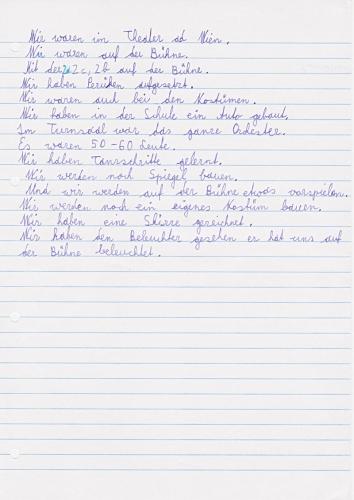 Wir waren im Theater ad Wien.
Wir waren auf der Bühne.
Mit der 2a 2c, 2b auf der Bühne.
Wir haben Perüken aufgesetzt.
Wir waren auch bei den Kostümen.
Wir haben in der Schule ein Auto gebaut.
Im Turnsaal war das ganze Orchester.
Es waren 50-60 Leute.
Wir haben Tansschritte gelernt.
Wir werden noch Spiegel bauen.
Und wir werden auf der Bühne etwas vorspielen.
Wir werden noch ein eigenes Kostüm bauen.
Wir haben eine Skizze gezeichnet.
Wir haben den Beleuchter gesehen er hat uns auf
der Bühne beleuchtet.